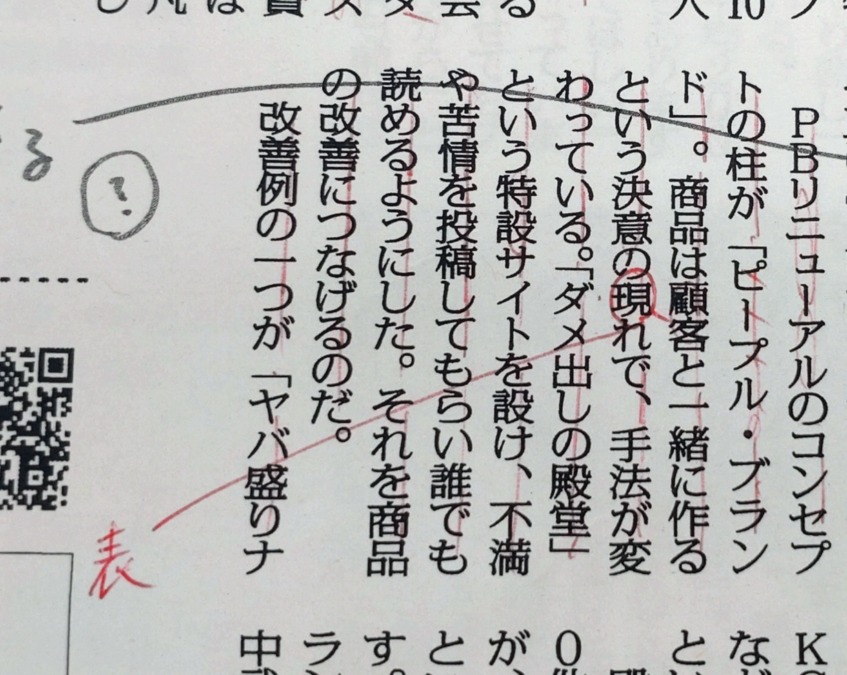 PBリニューアルのコンセプ
トの柱が「ピープル・ブラン
ド」。商品は顧客と一緒に作る
という決意の現れで、手法が変
わっている。「ダメ出しの殿堂」
という特設サイトを設け、不満
や苦情を投稿してもらい誰でも
読めるようにした。それを商品
の改善につなげるのだ。
改善例の一つが「ヤバ盛りナ
表
る
?